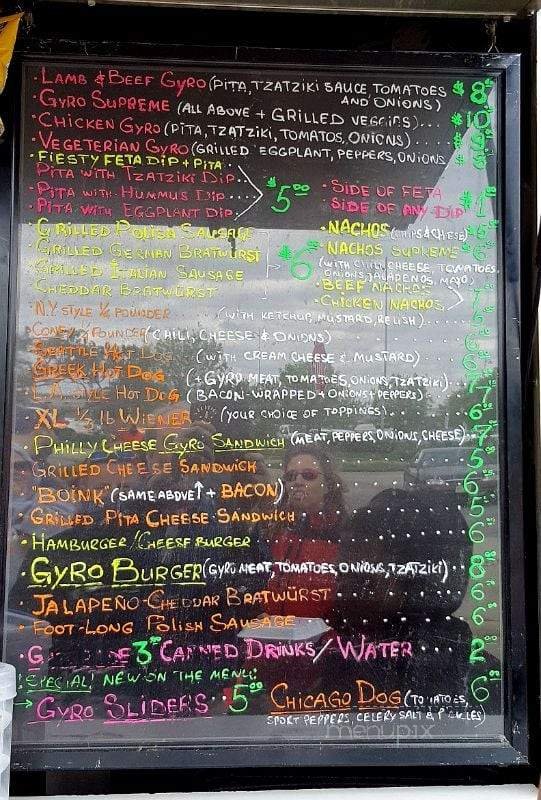 · LAMB & BEEF GYRO (PITA, TZATZIKI SAUCE TOMATOES AND ONIONS) $8
· GYRO SUPREME (ALL ABOVE + GRILLED VEGGIES)... $10
· CHICKEN GYRO (PITA, TZATZIKI, TOMATOS, ONIONS)...
· VEGETERIAN GYRO (GRILLED EGGPLANT, PEPPERS, ONIONS
· FIESTY FETA DIP + PITA
PITA WITH TZATZIKI DIP..
· PITA WITH HUMMUS DIP...
· PITA WITH EGGPLANT DIP.
$5.00
· SIDE OF FETA
SIDE OF ANY DIP $1
GRILLED POLISH SAUSAGE
GRILLED GERMAN BRATWÜRST
GRILLED ITALIAN SAUSAGE
CHEDDAR BRATWÜRST
$6
· NACHOS (CHIPS & CHEESE)
· NACHOS SUPREME
(WITH CHILI, CHEESE, TOMATOES,
ONIONS, JALAPENOS, MAYO)
· BEEF NACHOS
· CHICKEN NACHOS
· N.Y. STYLE ¼ POUNDER (WITH KETCHUP, MUSTARD, RELISH)...
CONEY ¼ POUNDER (CHILI, CHEESE & ONIONS)
SEATTLE HOT DOG (WITH CREAM CHEESE & MUSTARD)
GREEK HOT DOG (+ GYRO MEAT, TOMATOES, ONIONS, TZATZIKI)...
L.A. STYLE HOT DOG (BACON-WRAPPED + ONIONS + PEPPERS) 7
XL ⅓ lb WIENER (YOUR CHOICE OF TOPPINGS) 6
· PHILLY CHEESE GYRO SANDWICH (MEAT, PEPPERS, ONIONS, CHEESE) 7
· GRILLED CHEESE SANDWICH 5
· "BOINK" (SAME ABOVE ↑ + BACON) 6
· GRILLED PITA CHEESE SANDWICH 5
· HAMBURGER/CHEESEBURGER 6
· GYRO BURGER (GYRO MEAT, TOMATOES, ONIONS, TZATZIKI) 8
· JALAPEÑO-CHEDDAR BRATWÜRST 6
· FOOT-LONG POLISH SAUSAGE 6
· 3 CANNED DRINKS / WATER ... 2
! SPECIAL! NEW ON THE MENU!
→ GYRO SLIDERS · 5.00
CHICAGO DOG (TOMATOES, 6
SPORT PEPPERS, CELERY SALT & PICKLES)
menupix